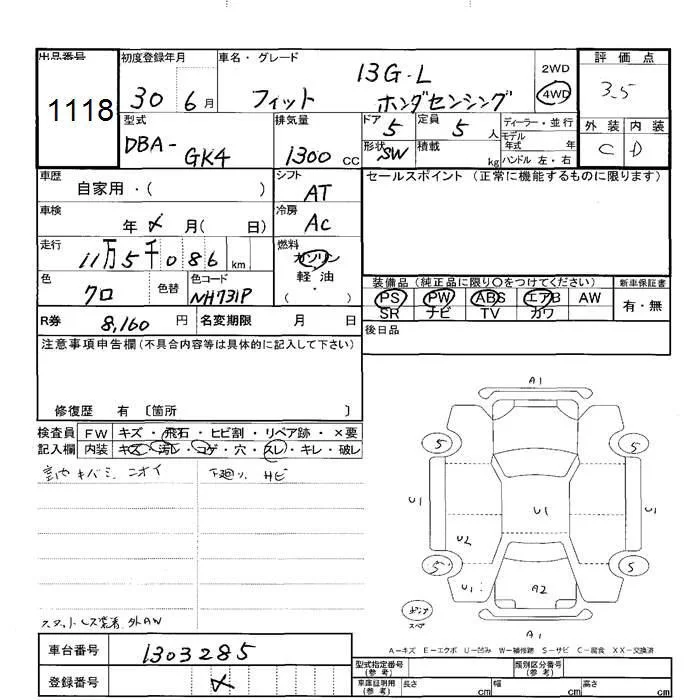 出品番号 初度登録年月 車名・グレード 評価点
1118 30 6月 フィット 13G・L 2WD
ホンダセンシング 4WD 3.5
型式 排気量 ドア 5 定員 5人 ディーラー・並行 外装 内装
DBA- GK4 1300 cc 形状 SW 積載 kg モデル年式 年 C D
ハンドル 左・右
車歴 シフト セールスポイント (正常に機能するものに限ります)
自家用・( ) AT
車検 冷房
年 月( 日) AC
走行 燃料
11万5千086 km ガソリン
軽油
・( )
色 色替 色コード 装備品 (純正品に限り○をつけてください) 新車保証書
クロ NH731P PS PW ABS エアB AW 有・無
SR ナビ TV カワ
R券 8,160 円 名変期限 月 日 後日品
注意事項申告欄 (不具合内容等は具体的に記入して下さい)
修復歴 有 〔箇所 〕
検査員 FW キズ・飛石・ヒビ割・リペア跡・×要
記入欄 内装 キズ・汚レ・コゲ・穴・スレ・キレ・破レ
室内 キバミ ニオイ 下廻リ サビ
A1
5 5
U1 U1 U1
U2
5 5
U1 A2
A1
スタットレス装着 外AW
A-キズ E-エクボ U-凹み W-補修跡 S-サビ C-腐食 XX-交換済
車台番号 1303285 型式指定番号 (参考) 類別区分番号 (参考)
登録番号 車庫証明用 (参考) 長さ cm 幅 cm 高さ cm